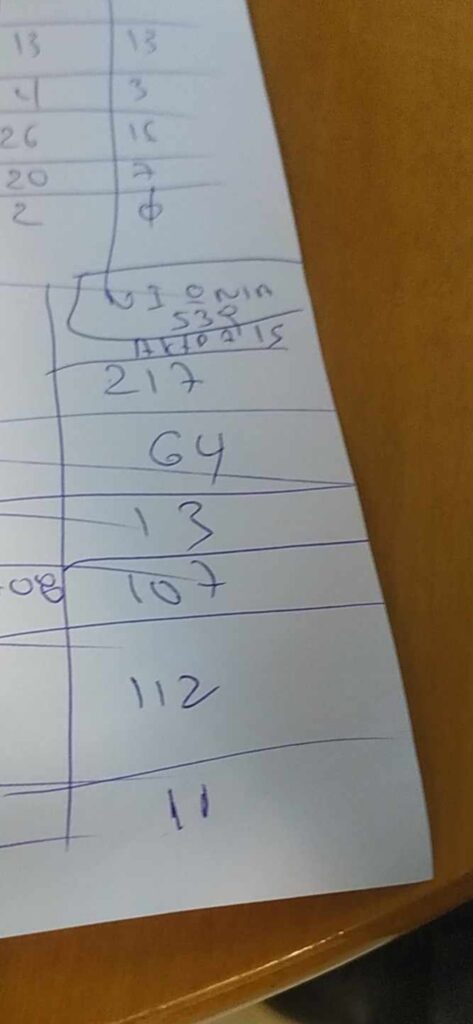 13 13
4 3
26 15
20 7
2 ϕ
539
217
64
13
107
112
11